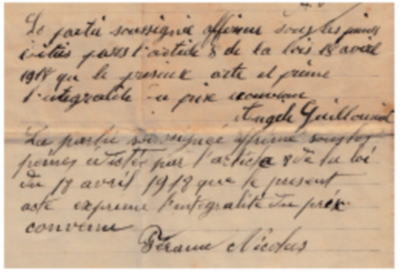 La partie soussignée affirme sous les peines
édictées par l'article 8 de la lois 18 avril
1918 que le présent acte et prime
l'integralité du prix convenu
Angele Guillound
La partie soussigné affirme sous les
peines edictée par l'article 8 de la loi
du 18 avril 1918 que le present
acte exprime l'integralité du prix
convenu
Nicolas